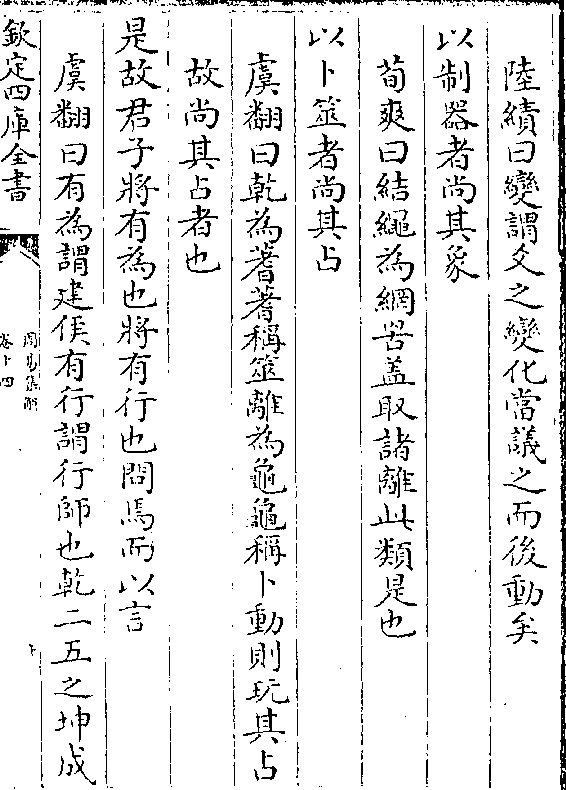 陸績曰變謂爻之變化當議之而後動矣
以制器者尚其象
荀爽曰結繩為網罟盖取諸離此類是也
以卜筮者尚其占
虞翻曰乾為蓍蓍稱筮離為龜龜稱卜動則玩其占
故尚其占者也
是故君子將有為也將有行也問焉而以言
虞翻曰有為謂建侯有行謂行師也乾二五之坤成
欽定四庫全書
周易集解
卷十四